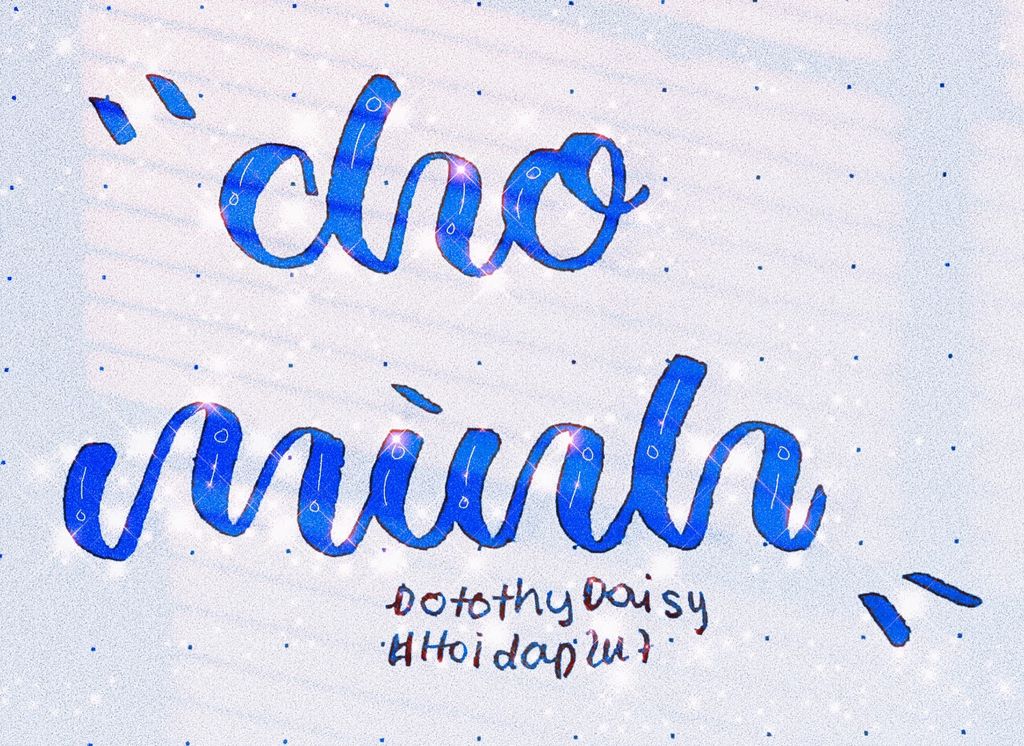 cho
mình
Dotothy Daisy
#Hoidap247